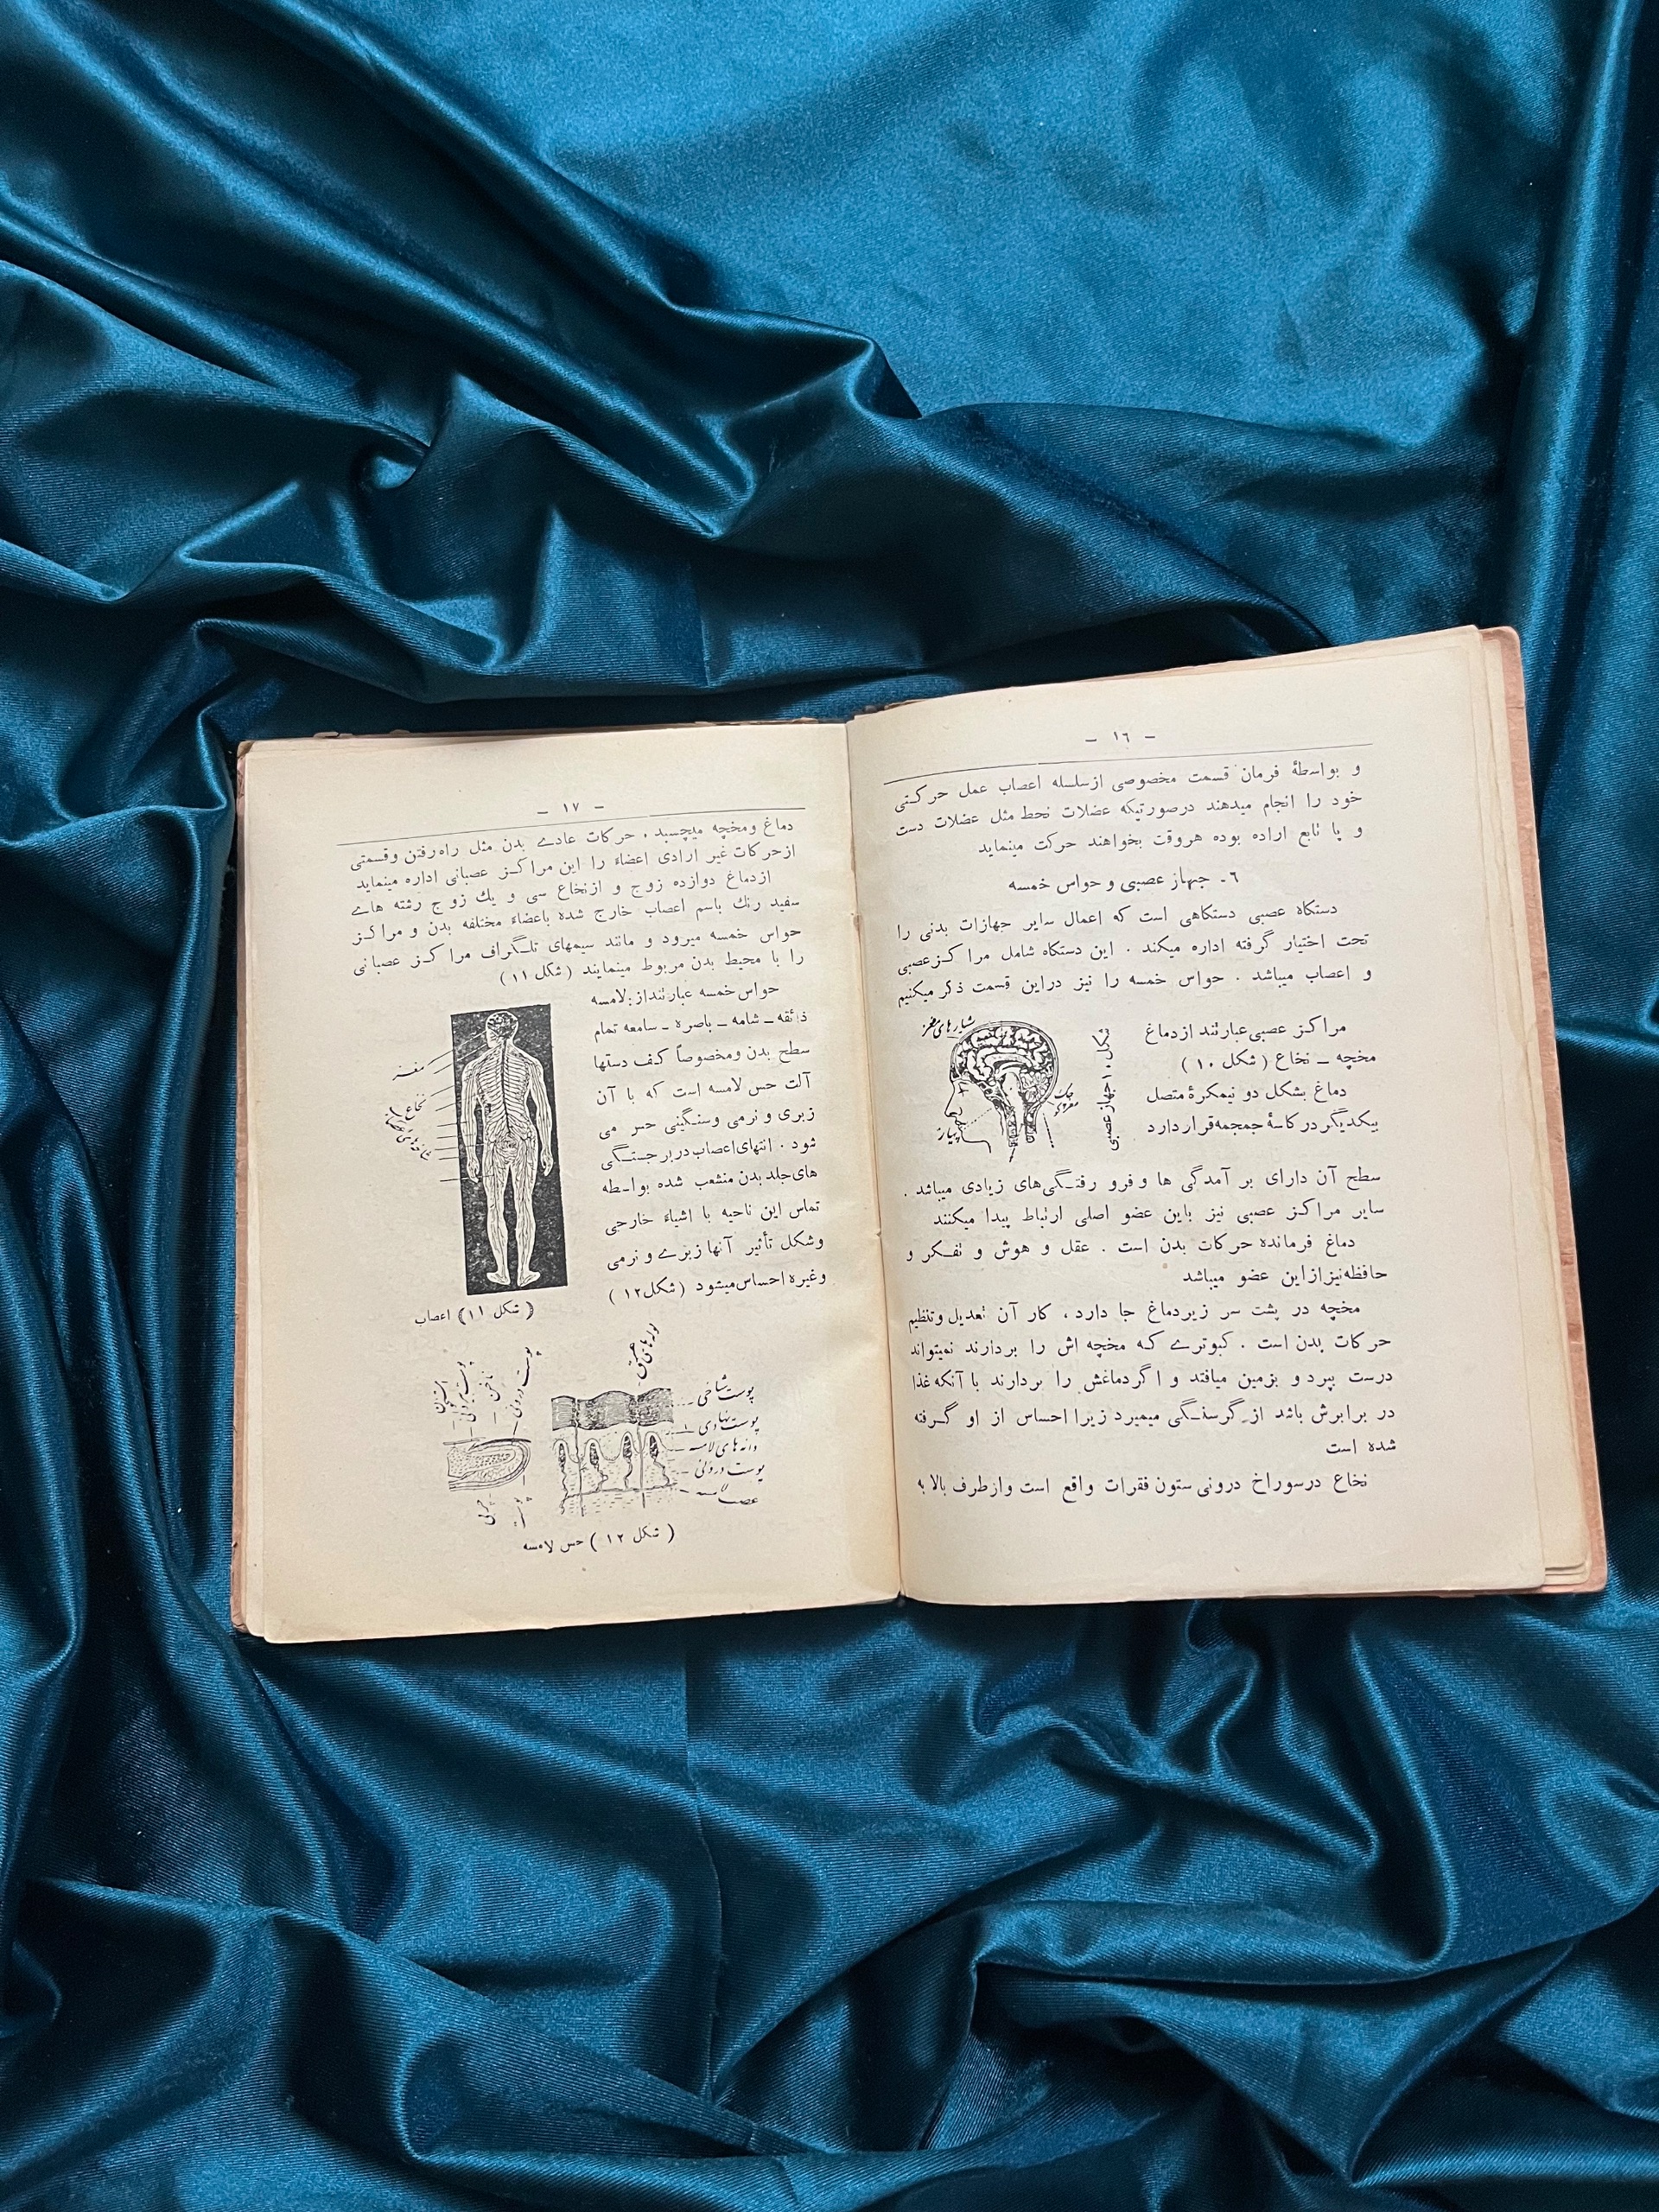 – ١٦ –
و بواسطهٔ فرمان قسمت مخصوصی ازسلسله اعصاب عمل حرکتی
خود را انجام میدهند درصورتیکه عضلات نحط مثل عضلات دست
و پا تابع اراده بوده هروقت بخواهند حرکت مینماید
٦- جهاز عصبی و حواس خمسه
دستگاه عصبی دستگاهی است که اعمال سایر جهازات بدنی را
تحت اختیار گرفته اداره میکند . این دستگاه شامل مراکزعصبی
و اعصاب میباشد . حواس خمسه را نیز دراین قسمت ذکر میکنیم
مراکز عصبی عبارتند ازدماغ
مخچه – نخاع ( شکل ١٠ )
دماغ بشکل دو نیمکرهٔ متصل
بیکدیگر در کاسهٔ جمجمه قرار دارد
شیارهای مغز
جهاز عصبی
سطح آن دارای بر آمدگی ها و فرو رفتگی‌های زیادی میباشد .
سایر مراکز عصبی نیز باین عضو اصلی ارتباط پیدا میکنند
دماغ فرمانده حرکات بدن است . عقل و هوش و تفکر و
حافظه نیز از این عضو میباشد
مخچه در پشت سر زیردماغ جا دارد ، کار آن تعدیل و تنظیم
حرکات بدن است . کبوترے که مخچه اش را بردارند نمیتواند
درست بپرد و بزمین میافتد و اگر دماغش را بردارند با آنکه غذا
در برابرش باشد از گرسنگی میمیرد زیرا احساس از او گرفته
شده است
نخاع درسوراخ درونی ستون فقرات واقع است و از طرف بالا به
– ١٧ –
دماغ ومخچه میچسبد ، حرکات عادے بدن مثل راه رفتن و قسمتی
از حرکات غیر ارادی اعضاء را این مراکز عصبانی اداره مینماید
ازدماغ دوازده زوج و ازنخاع سی و یك زوج رشته هاے
سفید رنك باسم اعصاب خارج شده باعضاء مختلفه بدن و مراکز
حواس خمسه میرود و مانند سیمهای تلگراف مراکز عصبانی
را با محیط بدن مربوط مینمایند ( شکل ١١ )
حواس خمسه عبارتنداز : لامسه
ذائقه – شامه – باصره – سامعه تمام
سطح بدن ومخصوصاً کف دستها
آلت حس لامسه است که با آن
زبری و نرمی وسنگینی حس می
شود . انتهای اعصاب در برجستگی
های جلد بدن منشعب شده بواسطه
تماس این ناحیه با اشیاء خارجی
وشکل تأثیر آنها زبرے و نرمی
وغیره احساس میشود ( شکل ١٢ )
مغز
نخاع
( شکل ١١ ) اعصاب
پوست شاخی
دانه های لامسه
پوست درونی
عصب لامسه
ناخن
پوست درونی
( شکل ١٢ ) حس لامسه